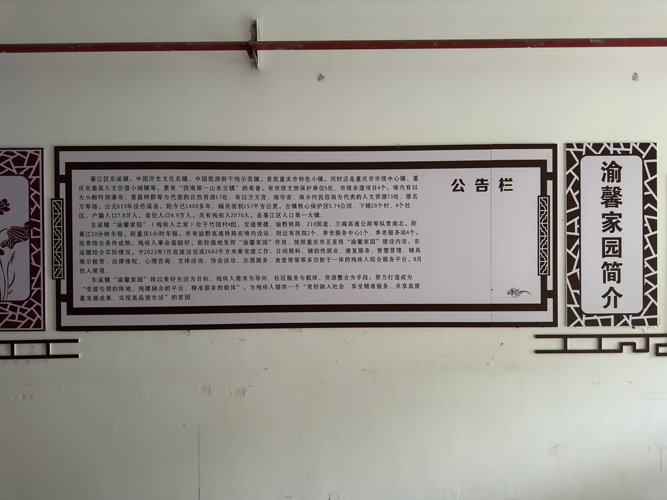 公告栏
綦江区东溪镇，中国历史文化名镇、中国旅游新干线示范镇，首批重庆市特色小镇，同时还是重庆市市级中心镇、重
庆市最具人文价值小城镇等，素有“西南第一山水古镇”的美誉。有市级文物保护单位5处、市级非遗项目4个，境内有以
大小鲤吟洞瀑布、黄葛树群等为代表的自然资源17处，有以万天宫、南华宫、麻乡约民信局为代表的人文资源73处。原名
万寿场，公元619年设丹溪县，距今已1400多年。幅员面积157平方公里，古镇核心保护区5.74公顷，下辖20个村、4个社
区，户籍人口7.8万人，常住人口4.9万人，共有残疾人2070人，是綦江区人口第一大镇。
东溪镇“渝馨家园”（残疾人之家）位于竹园村4组，交通便捷，渝黔铁路、210国道、兰海高速公路等纵贯南北，距
綦江30分钟车程，距重庆1小时车程，并有渝黔高速铁路在境内设站。附近有医院2个、养老服务中心1个、养老服务站4个，
医养结合条件成熟，残疾人事业基础好，能较强地发挥“渝馨家园”作用。按照重庆市五星级“渝馨家园”建设内容，东
溪镇结合实际情况，于2022年7月底建设完成2682平方米集党建工作、日间照料、辅助性就业、康复服务、智慧管理、辅具
展示租赁、法律维权、心理咨询、文体活动、协会活动、志愿服务、食堂用餐等多功能于一体的残疾人综合服务平台，8月
投入使用。
东溪镇“渝馨家园”将以美好生活为目标、残疾人需求为导向、社区服务为载体、资源整合为手段，努力打造成为
“党建引领的阵地、残健融合的平台、精准服务的载体”，为残疾人提供一个“更好融入社会、享受精准服务、共享高质
量发展成果、实现高品质生活”的家园。
渝馨家园简介